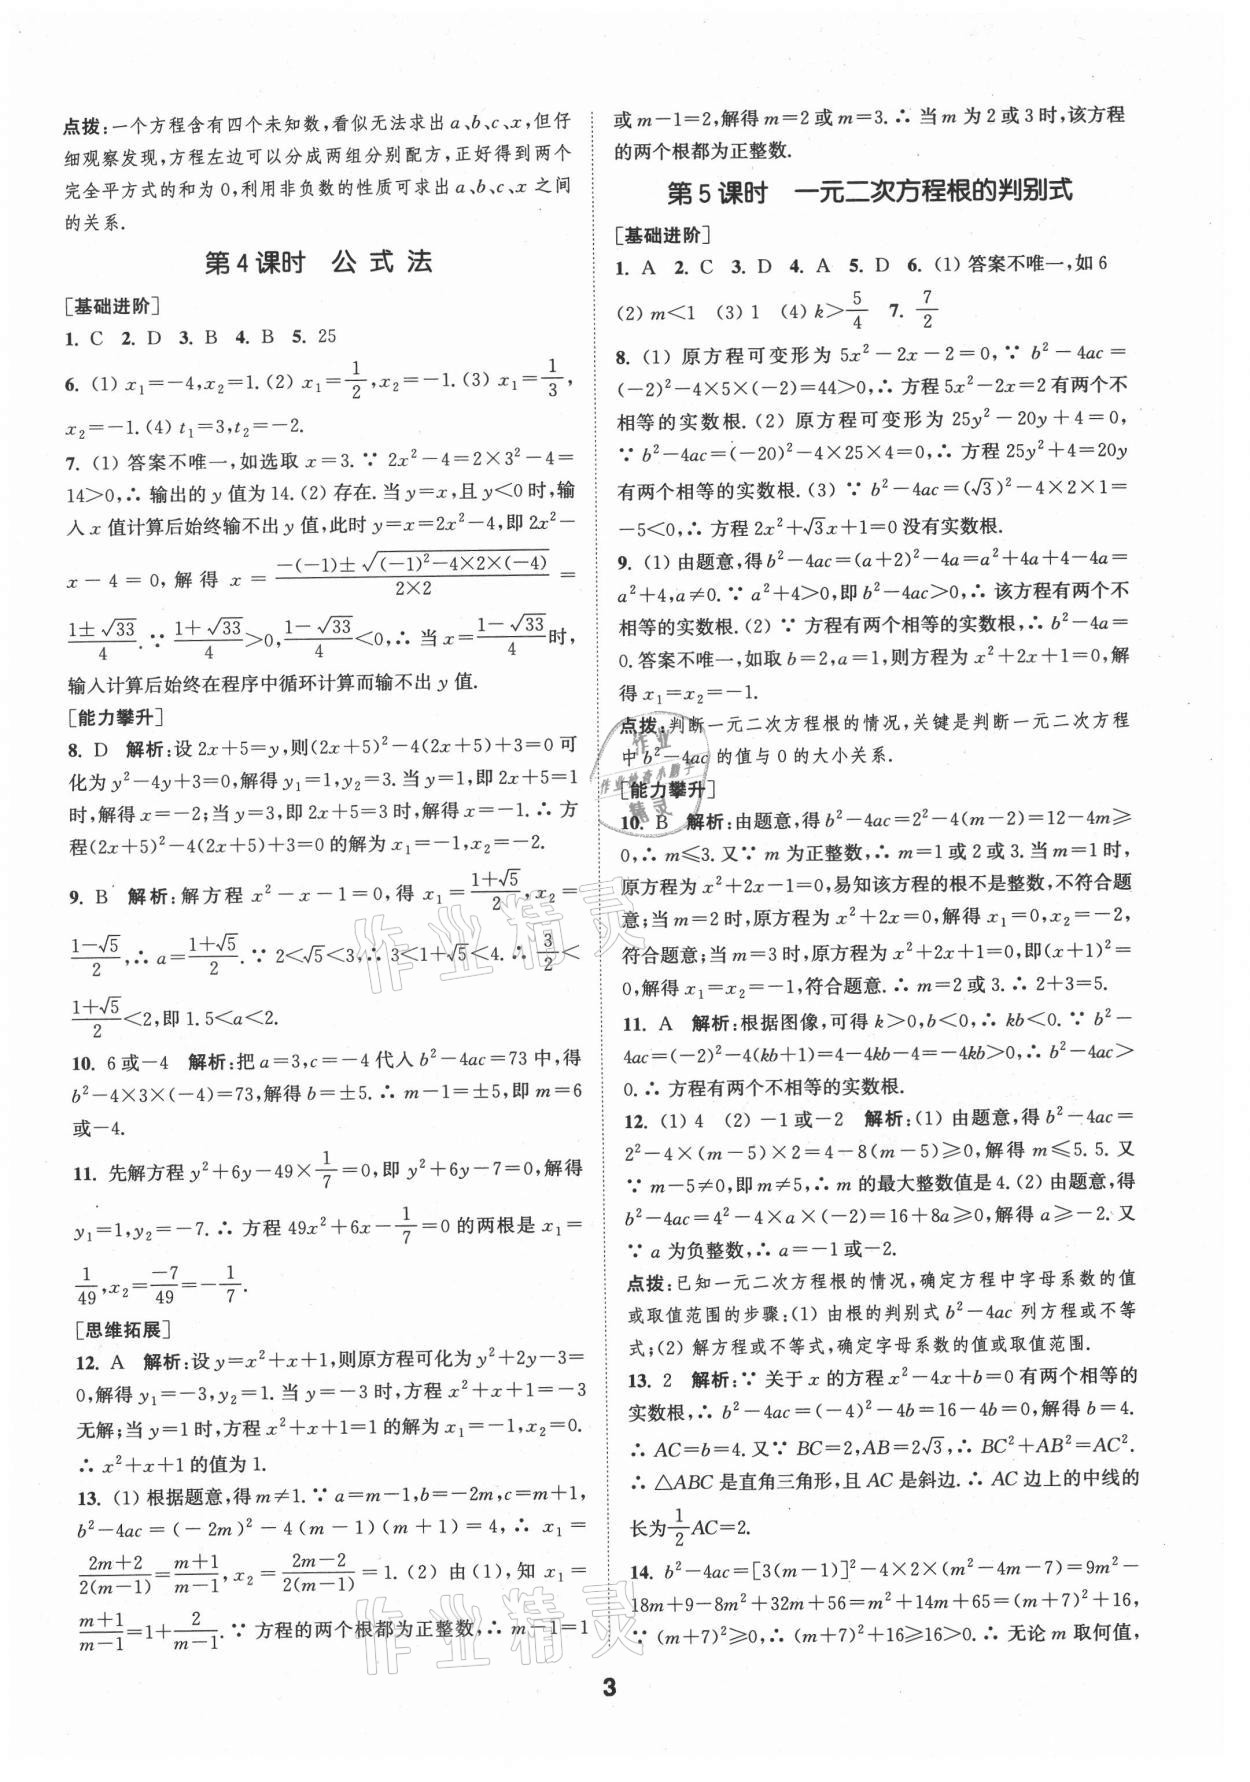 点拨:一个方程含有四个未知数,看似无法求出 a、b、c、x,但仔
细观察发现,方程左边可以分成两组分别配方,正好得到两个
完全平方式的和为 0,利用非负数的性质可求出 a、b、c、x 之间
的关系.
第 4 课时　公 式 法
[基础进阶]
1. C　2. D　3. B　4. B　5. 25
6. (1) x₁=-4,x₂=1. (2) x₁=1/2,x₂=-1. (3) x₁=1/3,
x₂=-1. (4) t₁=3,t₂=-2.
7. (1) 答案不唯一,如选取 x=3. ∵ 2x²-4=2×3²-4=
14>0,∴ 输出的 y 值为 14. (2) 存在. 当 y=x,且 y<0 时,输
入 x 值计算后始终输不出 y 值,此时 y=x=2x²-4,即 2x²-
x-4=0,解得 x=(-(-1)±√((-1)²-4×2×(-4)))/(2×2)=
(1±√33)/4. ∵ (1+√33)/4>0,(1-√33)/4<0,∴ 当 x=(1-√33)/4 时,
输入计算后始终在程序中循环计算而输不出 y 值.
[能力攀升]
8. D　解析:设 2x+5=y,则(2x+5)²-4(2x+5)+3=0 可
化为 y²-4y+3=0,解得 y₁=1,y₂=3. 当 y=1,即 2x+5=1
时,解得 x=-2;当 y=3,即 2x+5=3 时,解得 x=-1. ∴ 方
程(2x+5)²-4(2x+5)+3=0 的解为 x₁=-1,x₂=-2.
9. B　解析:解方程 x²-x-1=0,得 x₁=(1+√5)/2,x₂=
(1-√5)/2,∴ a=(1+√5)/2. ∵ 2<√5<3,∴ 3<1+√5<4. ∴ 3/2<
(1+√5)/2<2,即 1.5<a<2.
10. 6 或-4　解析:把 a=3,c=-4 代入 b²-4ac=73 中,得
b²-4×3×(-4)=73,解得 b=±5. ∴ m-1=±5,即 m=6
或-4.
11. 先解方程 y²+6y-49×1/7=0,即 y²+6y-7=0,解得
y₁=1,y₂=-7. ∴ 方程 49x²+6x-1/7=0 的两根是 x₁=
1/49,x₂=-7/49=-1/7.
[思维拓展]
12. A　解析:设 y=x²+x+1,则原方程可化为 y²+2y-3=
0,解得 y₁=-3,y₂=1. 当 y=-3 时,方程 x²+x+1=-3
无解;当 y=1 时,方程 x²+x+1=1 的解为 x₁=-1,x₂=0.
∴ x²+x+1 的值为 1.
13. (1) 根据题意,得 m≠1. ∵ a=m-1,b=-2m,c=m+1,
b²-4ac=(-2m)²-4(m-1)(m+1)=4,∴ x₁=
(2m+2)/(2(m-1))=(m+1)/(m-1),x₂=(2m-2)/(2(m-1))=1. (2) 由(1),知 x₁=
(m+1)/(m-1)=1+2/(m-1). ∵ 方程的两个根都为正整数,∴ m-1=1
或 m-1=2,解得 m=2 或 m=3. ∴ 当 m 为 2 或 3 时,该方程
的两个根都为正整数.
第 5 课时　一元二次方程根的判别式
[基础进阶]
1. A　2. C　3. D　4. A　5. D　6. (1) 答案不唯一,如 6
(2) m<1　(3) 1　(4) k>5/4　7. 7/2
8. (1) 原方程可变形为 5x²-2x-2=0,∵ b²-4ac=
(-2)²-4×5×(-2)=44>0,∴ 方程 5x²-2x=2 有两个不
相等的实数根. (2) 原方程可变形为 25y²-20y+4=0,
∵ b²-4ac=(-20)²-4×25×4=0,∴ 方程 25y²+4=20y
有两个相等的实数根. (3) ∵ b²-4ac=(√3)²-4×2×1=
-5<0,∴ 方程 2x²+√3x+1=0 没有实数根.
9. (1) 由题意,得 b²-4ac=(a+2)²-4a=a²+4a+4-4a=
a²+4,a≠0. ∵ a²+4>0,即 b²-4ac>0,∴ 该方程有两个不
相等的实数根. (2) ∵ 方程有两个相等的实数根,∴ b²-4a=
0. 答案不唯一,如取 b=2,a=1,则方程为 x²+2x+1=0,解
得 x₁=x₂=-1.
点拨:判断一元二次方程根的情况,关键是判断一元二次方程
中 b²-4ac 的值与 0 的大小关系.
[能力攀升]
10. B　解析:由题意,得 b²-4ac=2²-4(m-2)=12-4m≥
0,∴ m≤3. 又∵ m 为正整数,∴ m=1 或 2 或 3. 当 m=1 时,
原方程为 x²+2x-1=0,易知该方程的根不是整数,不符合题
意;当 m=2 时,原方程为 x²+2x=0,解得 x₁=0,x₂=-2,
符合题意;当 m=3 时,原方程为 x²+2x+1=0,即(x+1)²=
0,解得 x₁=x₂=-1,符合题意. ∴ m=2 或 3. ∴ 2+3=5.
11. A　解析:根据图像,可得 k>0,b<0,∴ kb<0. ∵ b²-
4ac=(-2)²-4(kb+1)=4-4kb-4=-4kb>0,∴ b²-4ac>
0. ∴ 方程有两个不相等的实数根.
12. (1) 4　(2) -1 或-2　解析:(1) 由题意,得 b²-4ac=
2²-4×(m-5)×2=4-8(m-5)≥0,解得 m≤5.5. 又
∵ m-5≠0,即 m≠5,∴ m 的最大整数值是 4. (2) 由题意,得
b²-4ac=4²-4×a×(-2)=16+8a≥0,解得 a≥-2. 又
∵ a 为负整数,∴ a=-1 或-2.
点拨:已知一元二次方程根的情况,确定方程中字母系数的值
或取值范围的步骤:(1) 由根的判别式 b²-4ac 列方程或不等
式;(2) 解方程或不等式,确定字母系数的值或取值范围.
13. 2　解析:∵ 关于 x 的方程 x²-4x+b=0 有两个相等的
实数根,∴ b²-4ac=(-4)²-4b=16-4b=0,解得 b=4.
∴ AC=b=4. 又∵ BC=2,AB=2√3,∴ BC²+AB²=AC².
∴ △ABC 是直角三角形,且 AC 是斜边. ∴ AC 边上的中线的
长为1/2AC=2.
14. b²-4ac=[3(m-1)]²-4×2×(m²-4m-7)=9m²-
18m+9-8m²+32m+56=m²+14m+65=(m+7)²+16,
∵ (m+7)²≥0,∴ (m+7)²+16≥16>0. ∴ 无论 m 取何值,
3
作业精灵
作业精灵
作业
精灵